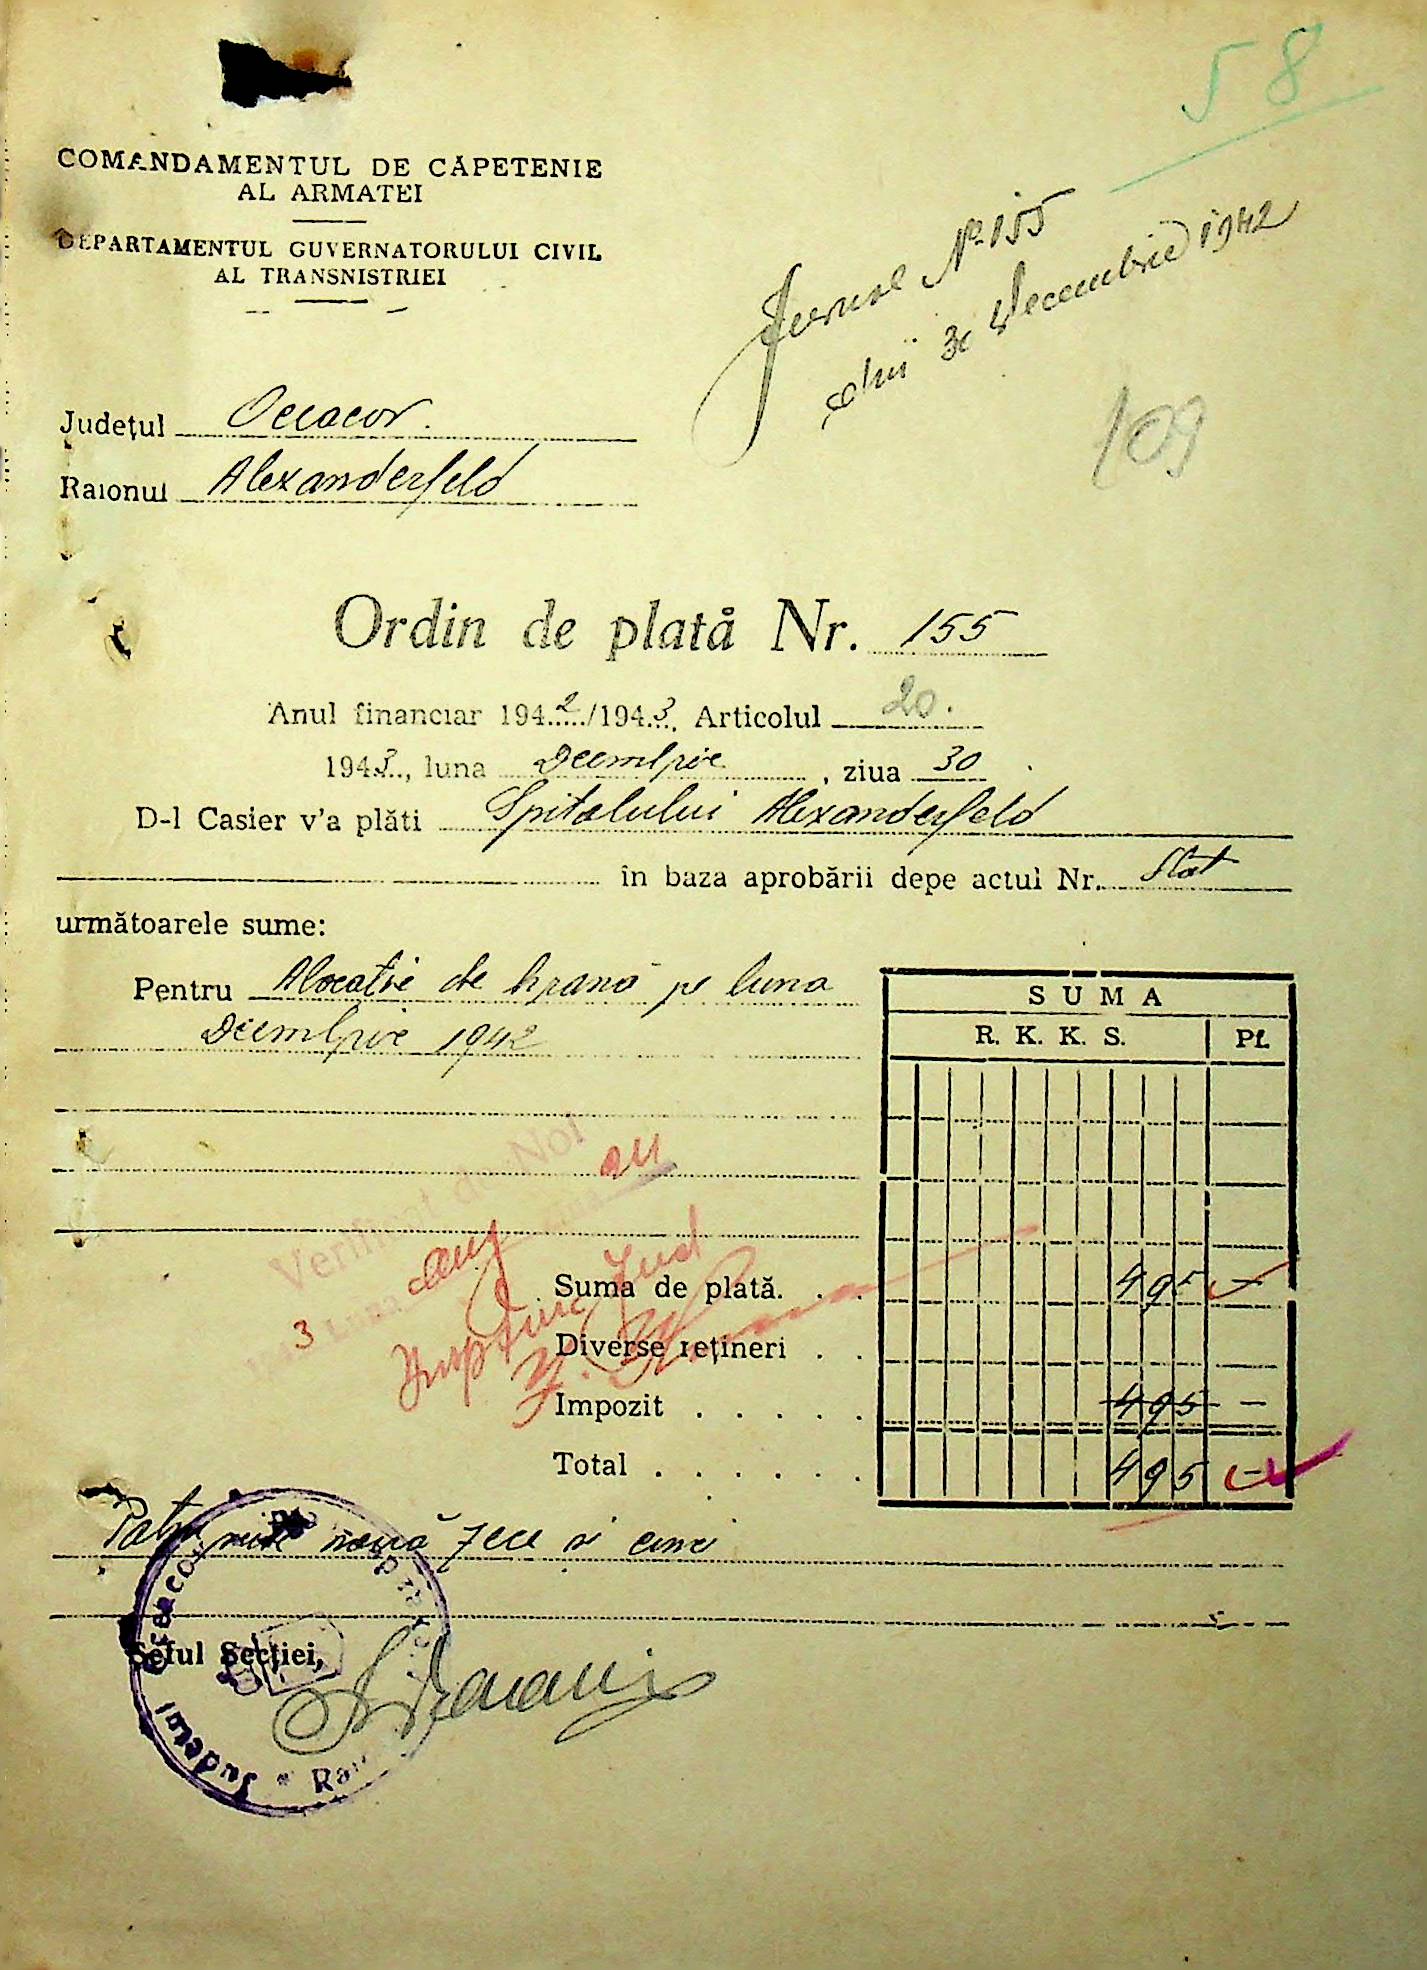 58
COMANDAMENTUL DE CĂPETENIE
AL ARMATEI
DEPARTAMENTUL GUVERNATORULUI CIVIL
AL TRANSNISTRIEI
Jurnal No 155
din 30 Decembrie 1942
109
Județul Oceacov.
Raionul Alexanderfeld
Ordin de plată Nr. 155
Anul financiar 1942/1943, Articolul 20.
1943, luna Decembrie, ziua 30
D-l Casier v'a plăti Spitalului Alexanderfeld
în baza aprobării depe actul Nr. Stat
următoarele sume:
Pentru Alocatie de hrană pe luna
Decembrie 1942
SUMA
R. K. K. S. Pf.
Verificat de Noi
3 Luna
Suma de plată. . . 495 —
Diverse rețineri . .
Impozit . . . . . 495 —
Total . . . . . . 495 —
Patru sute nouă zece si cinci
Șeful Secției,
Județul Oceacov